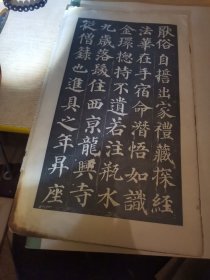 厭俗自誓出家禮藏探經
法華在手宿命潛悟如識
金環總持不遺若注瓶水
九歲落髮住西京龍興寺
從僧籙也進具之年昇座